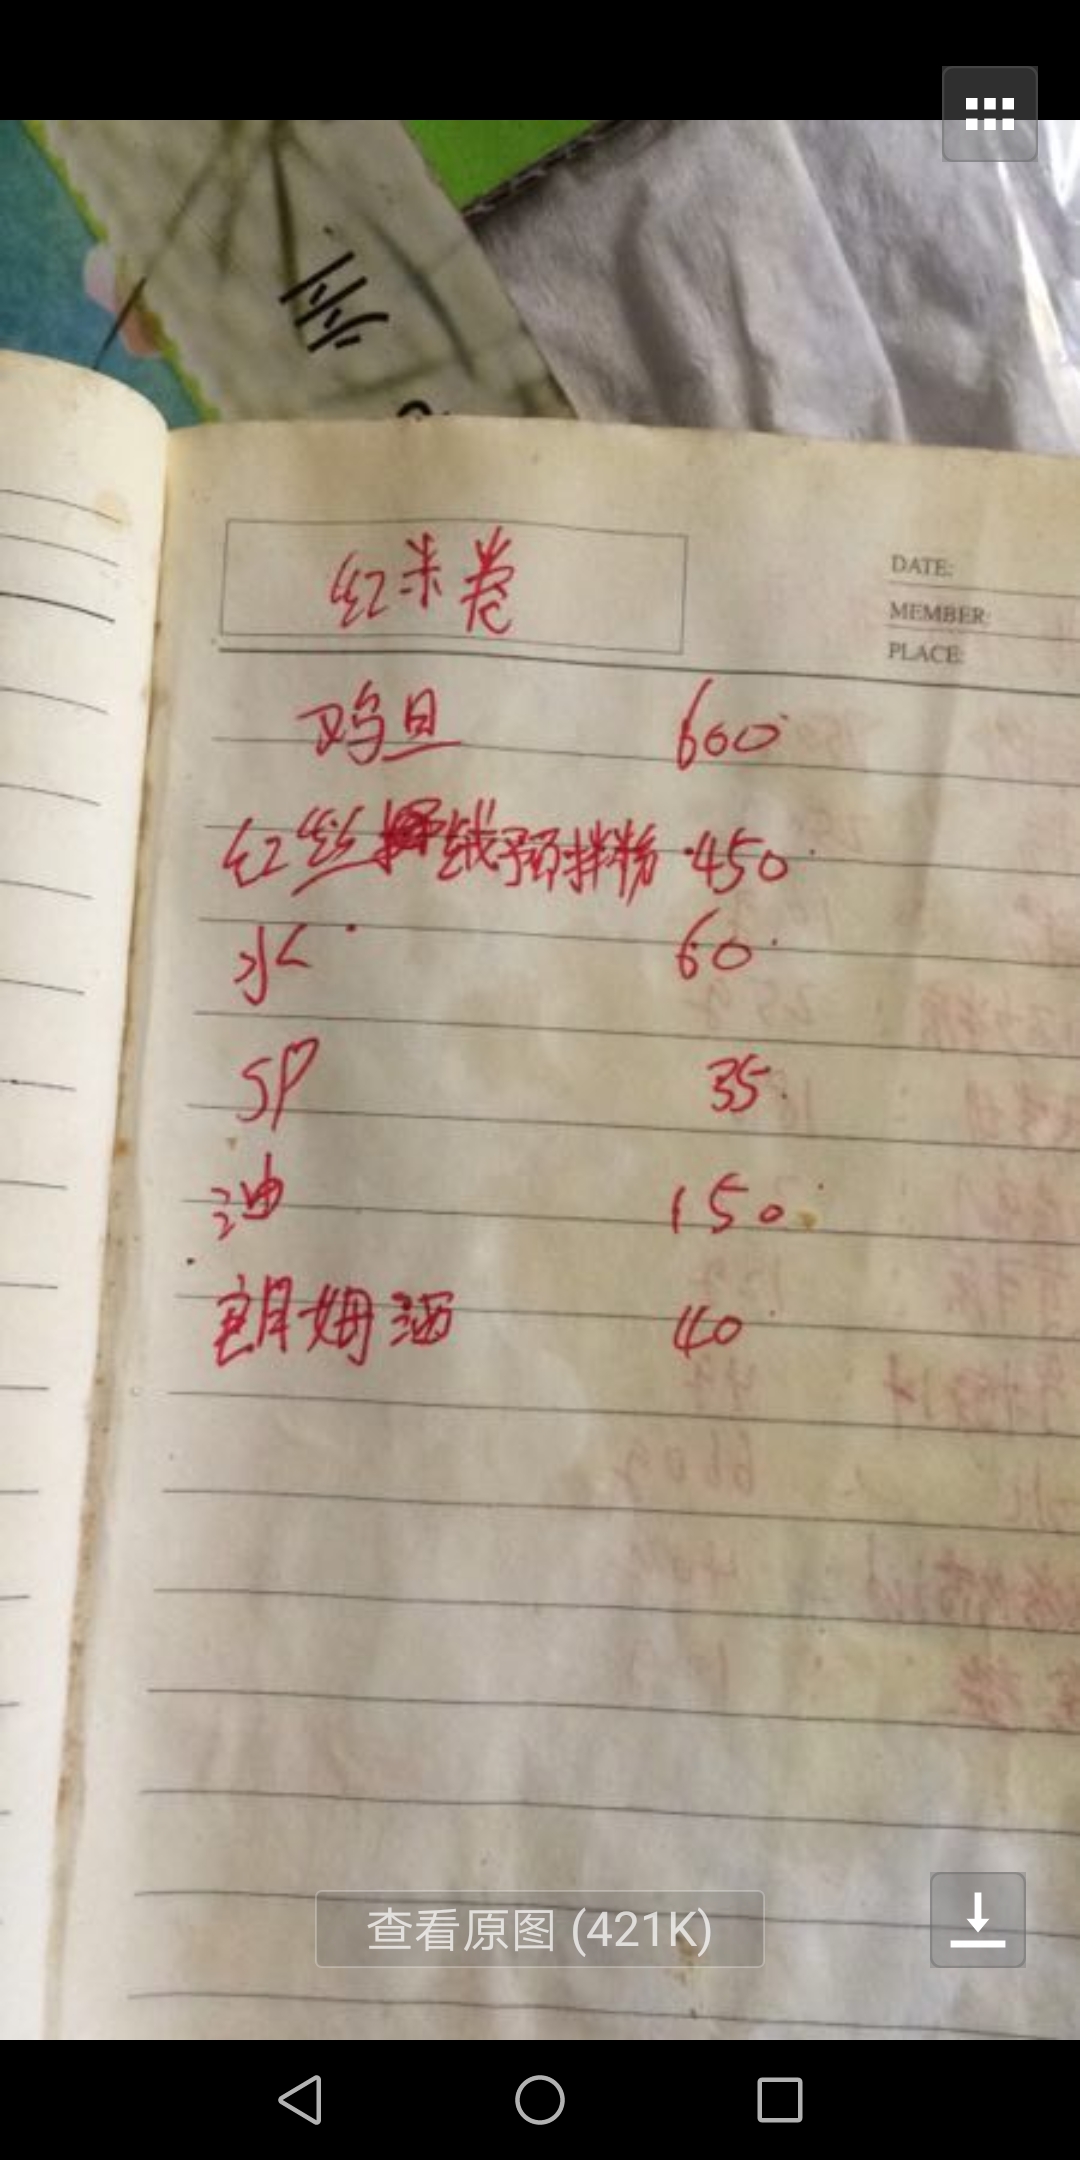 红米卷
DATE:
MEMBER:
PLACE:
鸡旦 600
红丝绒预拌粉 450
水 60
SP 35
油 150
朗姆酒 40
查看原图 (421K)